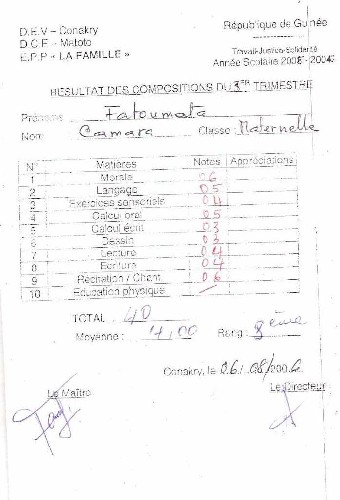 D.E.V – Conakry
République de Guinée
D.C.E – Matoto
E.P.P « LA FAMILLE »
Travail-Justice-Solidarité
Année Scolaire 2005 - 2006
RESULTAT DES COMPOSITIONS DU 3ER TRIMESTRE
Prénoms Fatoumata
Nom: Camara Classe : Maternelle
N° Matières Notes Appréciations
1 Morale 06
2 Langage 05
3 Exercices sensoriels 04
4 Calcul oral 05
5 Calcul écrit 03
6 Dessin 03
7 Lecture 04
8 Ecriture 04
9 Récitation / Chant 06
10 Education physique
TOTAL 40
Moyenne : 4,00 Rang : 8ème
Conakry, le 06/08/2006
Le Maître Le Directeur